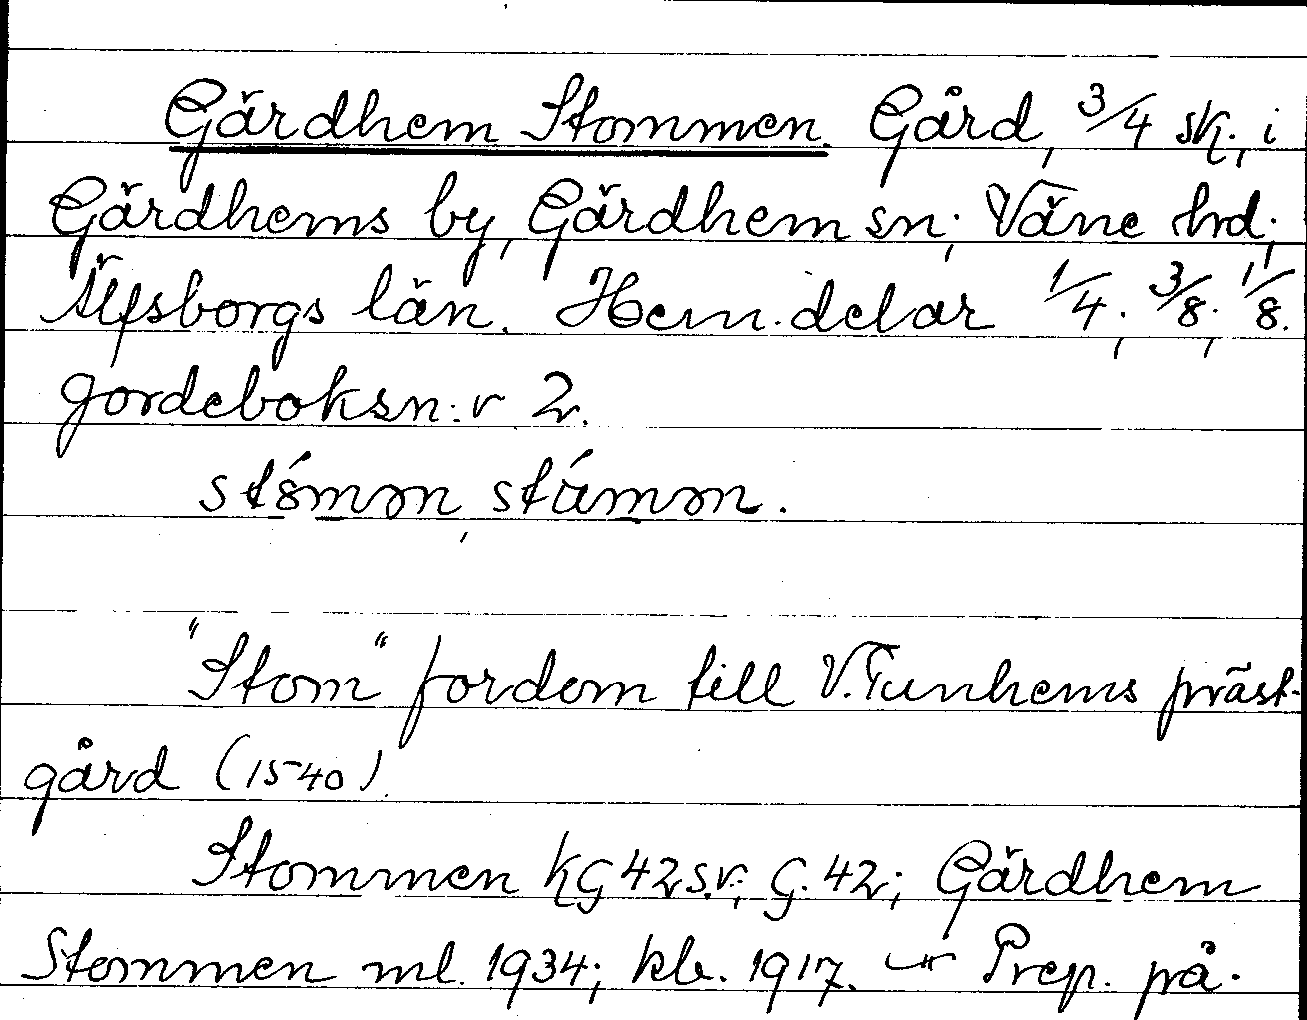 Gärdhem Stommen. Gård, 3/4 sk., i
Gärdhems by, Gärdhem sn; Väne hd;
Älfsborgs län. Hem.delar 1/4; 3/8; 1/8.
Jordeboksn:r 2.
"Stom" fordom till V. Tunhems präst-
gård (1540)
Stommen KG 42 s.v.; G. 42; Gärdhem
Stommen ml. 1934; kb. 1917. Prep. på.